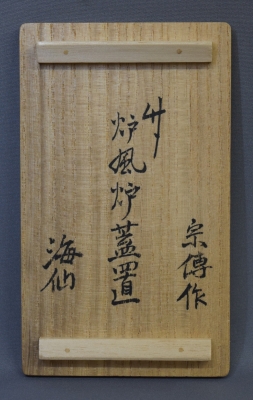 宗傳作
竹
炉風炉蓋置
海仙